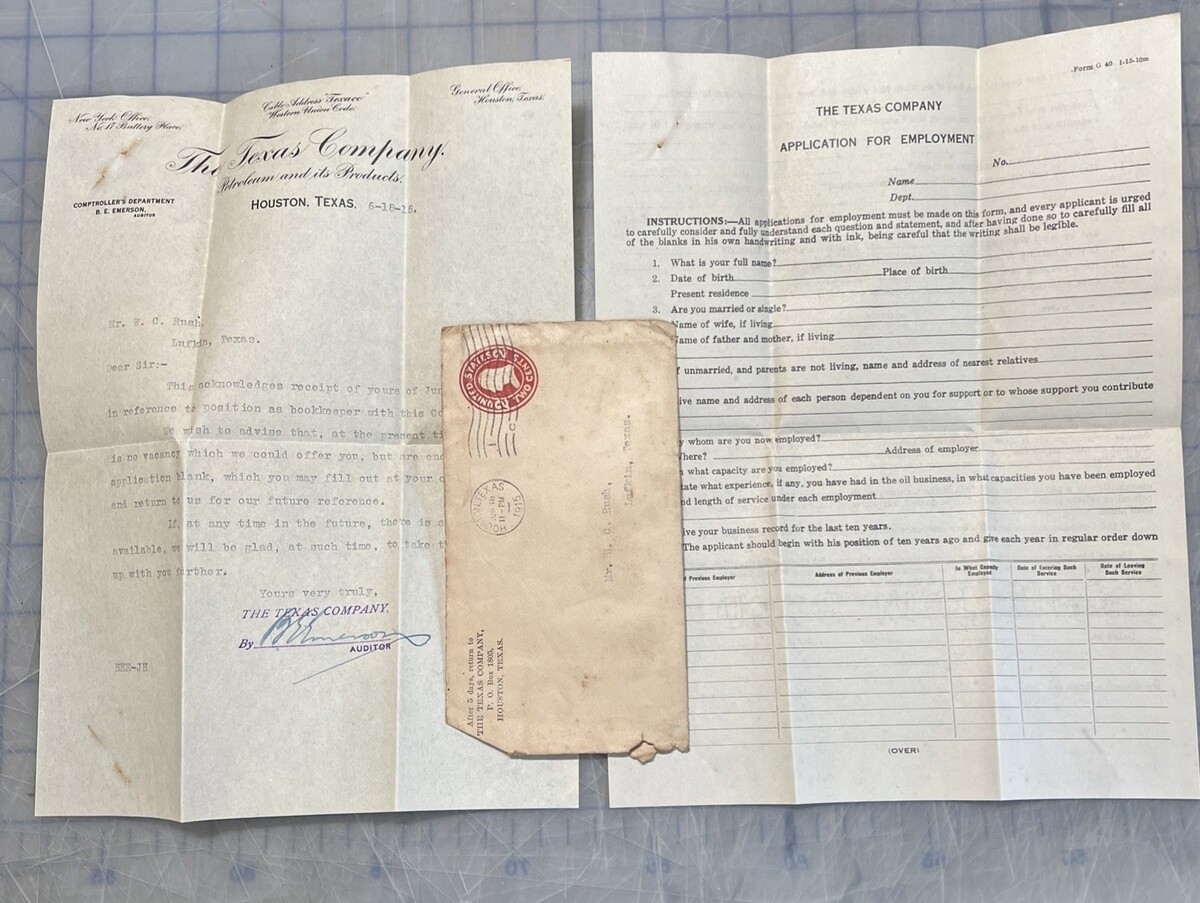 New York Office,
No. 17 Battery Place.
Cable Address "Texaco"
Western Union Code.
General Office,
Houston, Texas.
The Texas Company.
Petroleum and its Products.
COMPTROLLER'S DEPARTMENT
B. E. EMERSON,
AUDITOR
HOUSTON, TEXAS, 6-18-15.
Mr. W. C. Rush,
Lufkin, Texas.
Dear Sir:-
This acknowledges receipt of yours of Jun
in reference to position as bookkeeper with this Co
We wish to advise that, at the present ti
is no vacancy which we could offer you, but are enc
application blank, which you may fill out at your c
and return to us for our future reference.
If at any time in the future, there is a
available, we will be glad, at such time, to take t
up with you further.
Yours very truly,
THE TEXAS COMPANY,
By B E Emerson
AUDITOR
BEE-JH
UNITED STATES
HOUSTON, TEXAS
11-PM
1915
Mr. W. C. Rush,
Lufkin, Texas.
After 5 days, return to
THE TEXAS COMPANY,
P. O. Box 1805,
HOUSTON, TEXAS.
Form G 40 1-15-10m
THE TEXAS COMPANY
APPLICATION FOR EMPLOYMENT
No.
Name
Dept.
INSTRUCTIONS:—All applications for employment must be made on this form, and every applicant is urged
to carefully consider and fully understand each question and statement, and after having done so to carefully fill all
of the blanks in his own handwriting and with ink, being careful that the writing shall be legible.
1. What is your full name?
2. Date of birth Place of birth
Present residence
3. Are you married or single?
Name of wife, if living
Name of father and mother, if living
f unmarried, and parents are not living, name and address of nearest relatives
ive name and address of each person dependent on you for support or to whose support you contribute
y whom are you now employed?
here? Address of employer
n what capacity are you employed?
tate what experience, if any, you have had in the oil business, in what capacities you have been employed
nd length of service under each employment
ive your business record for the last ten years.
The applicant should begin with his position of ten years ago and give each year in regular order down
f Previous Employer Address of Previous Employer In What Capacity Employed Date of Entering Such Service Date of Leaving Such Service
(OVER)
70